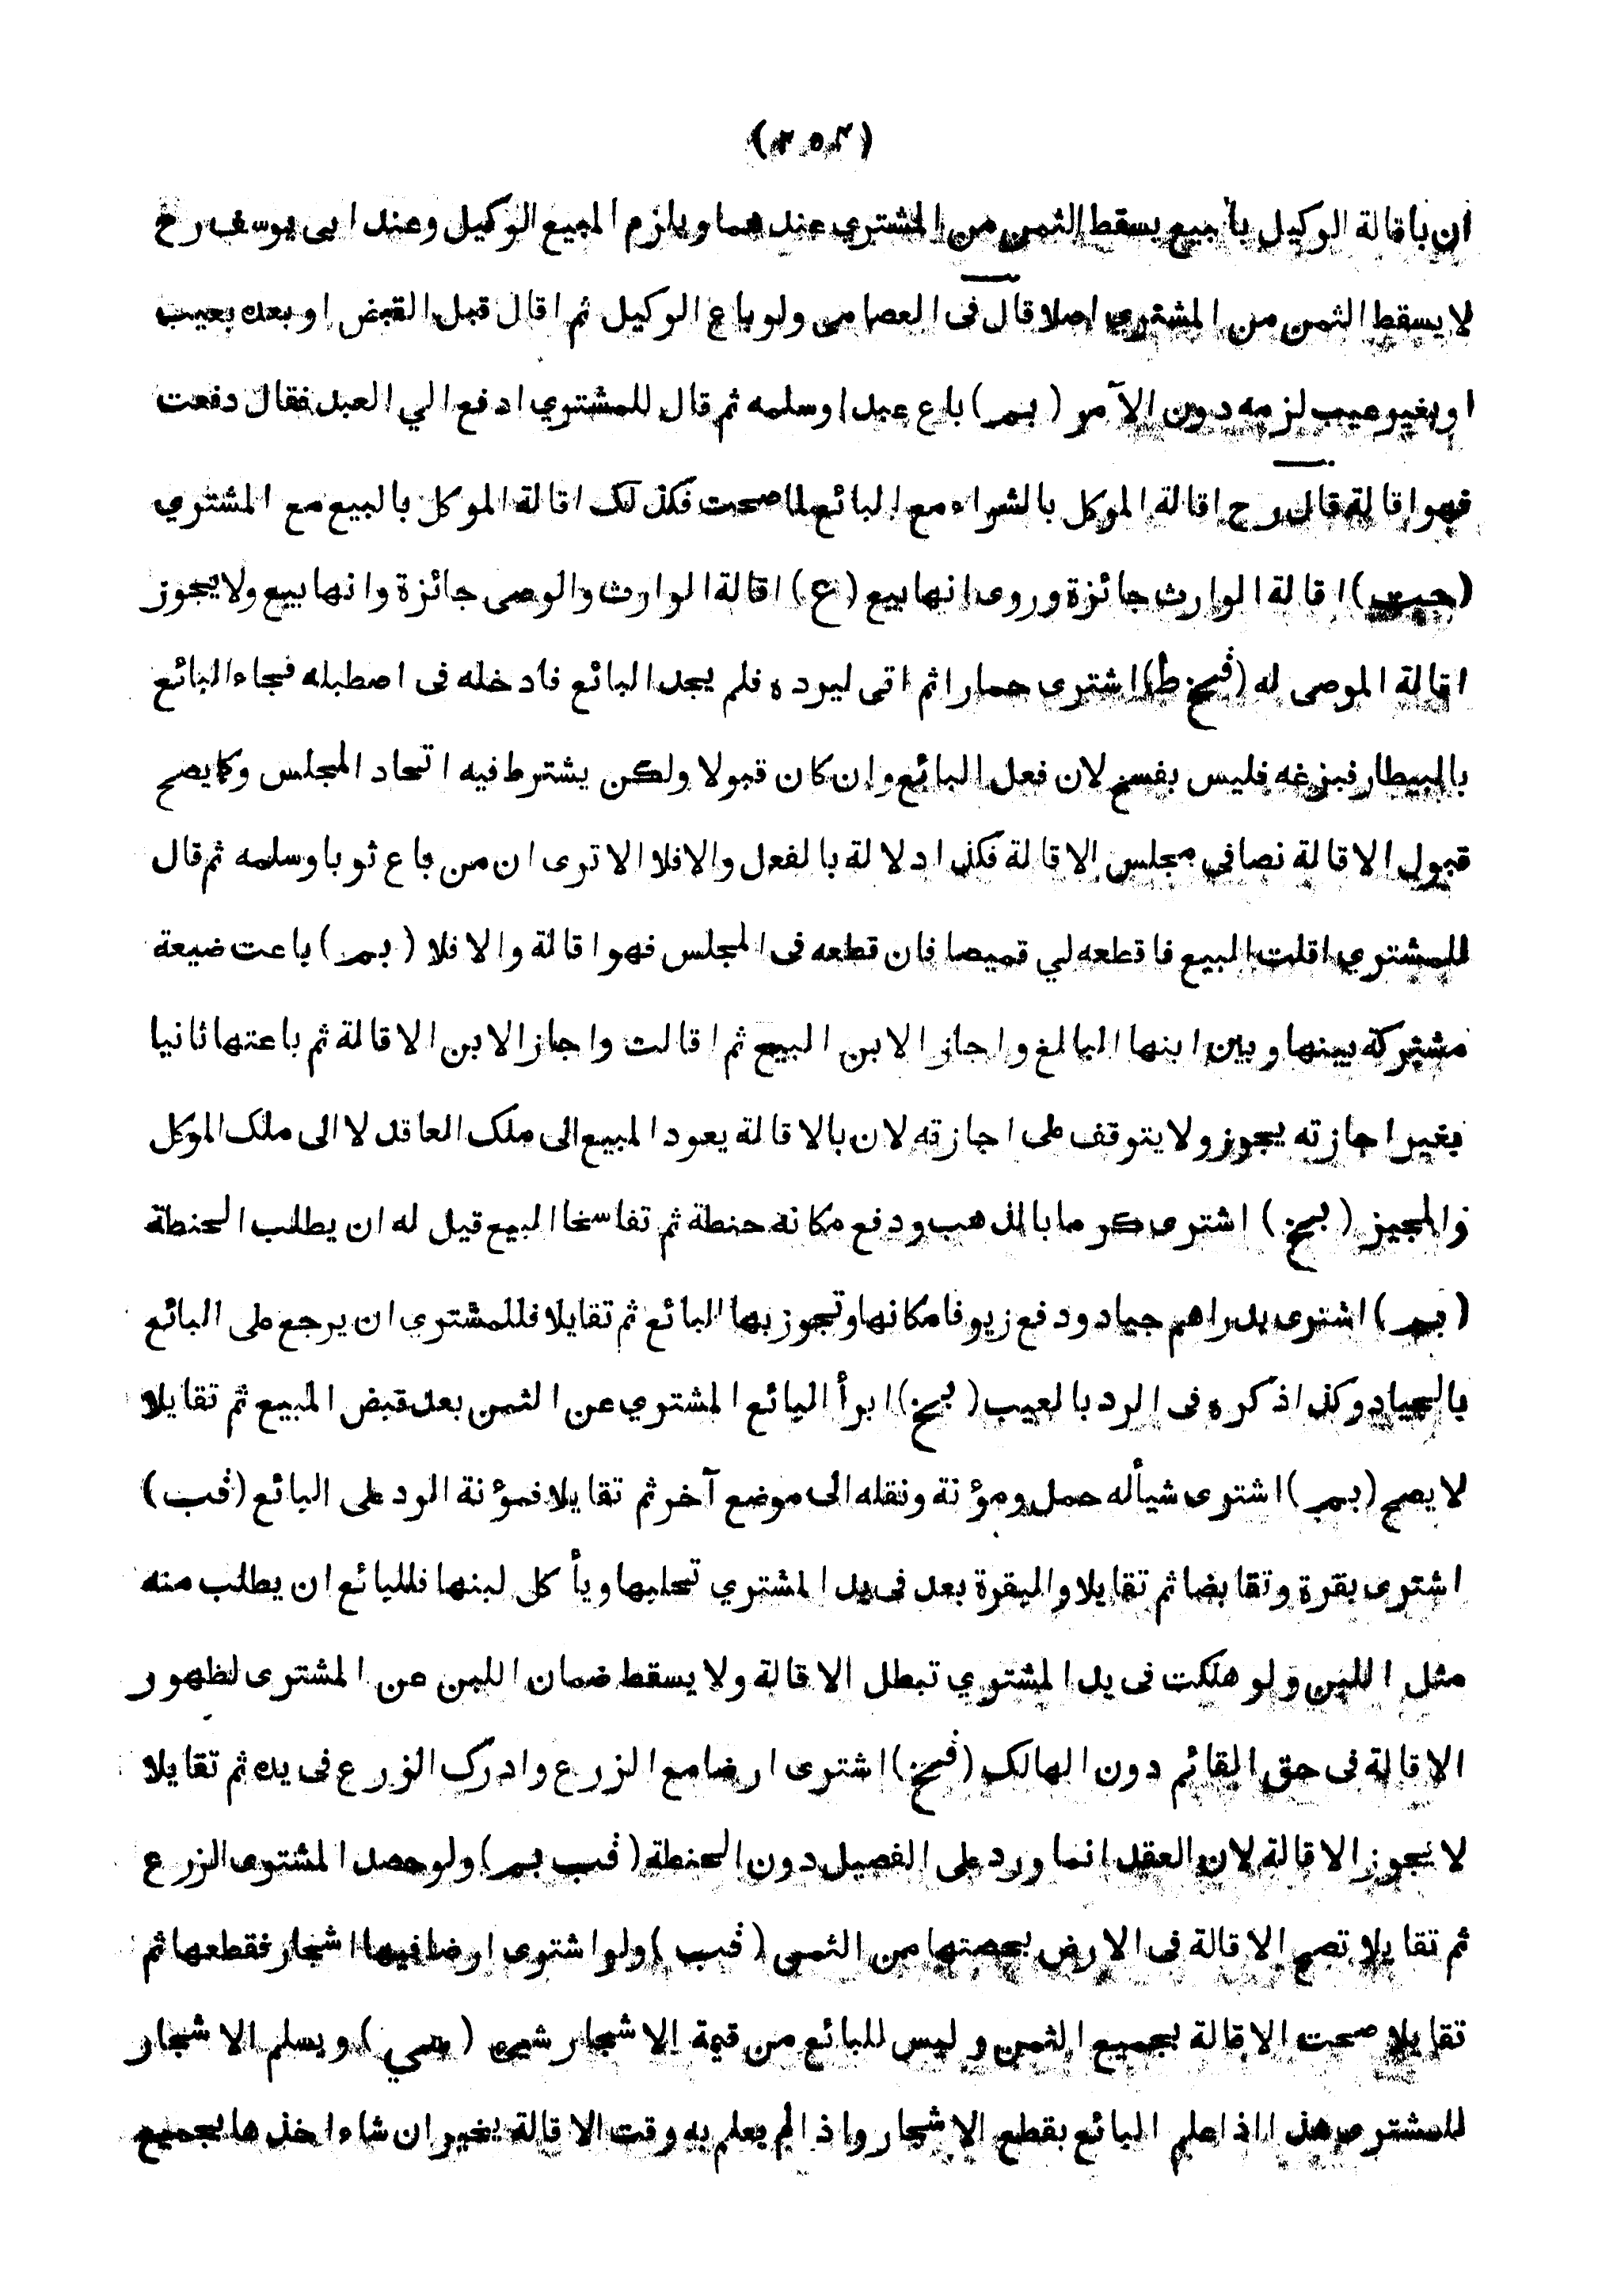 (٢٥٢)
ان باقالة الوكيل بالبيع يسقط الثمن من المشتري عندهما ويلزم المبيع الوكيل وعند ابى يوسف رح
لا يسقط الثمن من المشترى اصلا قال فى العصامى ولو باع الوكيل ثم اقال قبل القبض او بعده بعيب
او بغير عيب لزمه دون الآمر (بم) باع عبدا وسلمه ثم قال للمشتري ادفع الي العبد فقال دفعت
فهو اقالة قال رح اقالة الموكل بالشراء مع البائع لما صحت فكذلك اقالة الموكل بالبيع مع المشتري
(جت) اقالة الوارث جائزة وروى انها بيع (ع) اقالة الوارث والوصى جائزة وانها بيع ولا يجوز
اقالة الموصى له (قخ ط) اشترى حمارا ثم اتى ليرده فلم يجد البائع فادخله فى اصطبله فجاء البائع
بالبيطار فبزغه فليس بفسخ لان فعل البائع وان كان قبولا ولكن يشترط فيه اتحاد المجلس وكما يصح
قبول الاقالة نصا في مجلس الاقالة فكذا دلالة بالفعل والا فلا الا ترى ان من باع ثوبا وسلمه ثم قال
للمشتري اقلت البيع فاقطعه لي قميصا فان قطعه فى المجلس فهو اقالة والا فلا (بم) باعت ضيعة
مشتركة بينها وبين ابنها البالغ واجاز الابن البيع ثم اقالت واجاز الابن الاقالة ثم باعتها ثانيا
بغير اجازته يجوز ولا يتوقف على اجازته لان بالاقالة يعود المبيع الى ملك العاقد لا الى ملك الموكل
والمجيز (بخ) اشترى كرما بالذهب ودفع مكانه حنطة ثم تفاسخا البيع قيل له ان يطلب الحنطة
(بم) اشترى بدراهم جياد ودفع زيوفا مكانها وتجوز بها البائع ثم تقايلا فللمشترى ان يرجع على البائع
بالجياد وكذا ذكره فى الرد بالعيب (بخ) ابرأ البائع المشتري عن الثمن بعد قبض المبيع ثم تقايلا
لا يصح (بم) اشترى شيأ له حمل ومؤنة ونقله الى موضع آخر ثم تقايلا فمؤنة الرد على البائع (قب)
اشترى بقرة وتقابضا ثم تقايلا والبقرة بعد فى يد المشتري تحلبها ويأكل لبنها فللبائع ان يطلب منه
مثل اللبن ولو هلكت فى يد المشتوي تبطل الاقالة ولا يسقط ضمان اللبن عن المشترى لظهور
الاقالة فى حق القائم دون الهالك (قخ) اشترى ارضا مع الزرع وادرك الزرع فى يده ثم تقايلا
لا تجوز الاقالة لان العقد انما ورد على الفصيل دون الحنطة (قب بم) ولو حصد المشتوى الزرع
ثم تقايلا تصح الاقالة فى الارض بحصتها من الثمن (قب) ولو اشتوى ارضا فيها اشجار فقطعها ثم
تقايلا صحت الاقالة بجميع الثمن وليس للبائع من قيمة الاشجار شىء ويسلم الاشجار
للمشترى هذا اذا علم البائع بقطع الاشجار واذا لم يعلم به وقت الاقالة يخير ان شاء اخذها بجميع